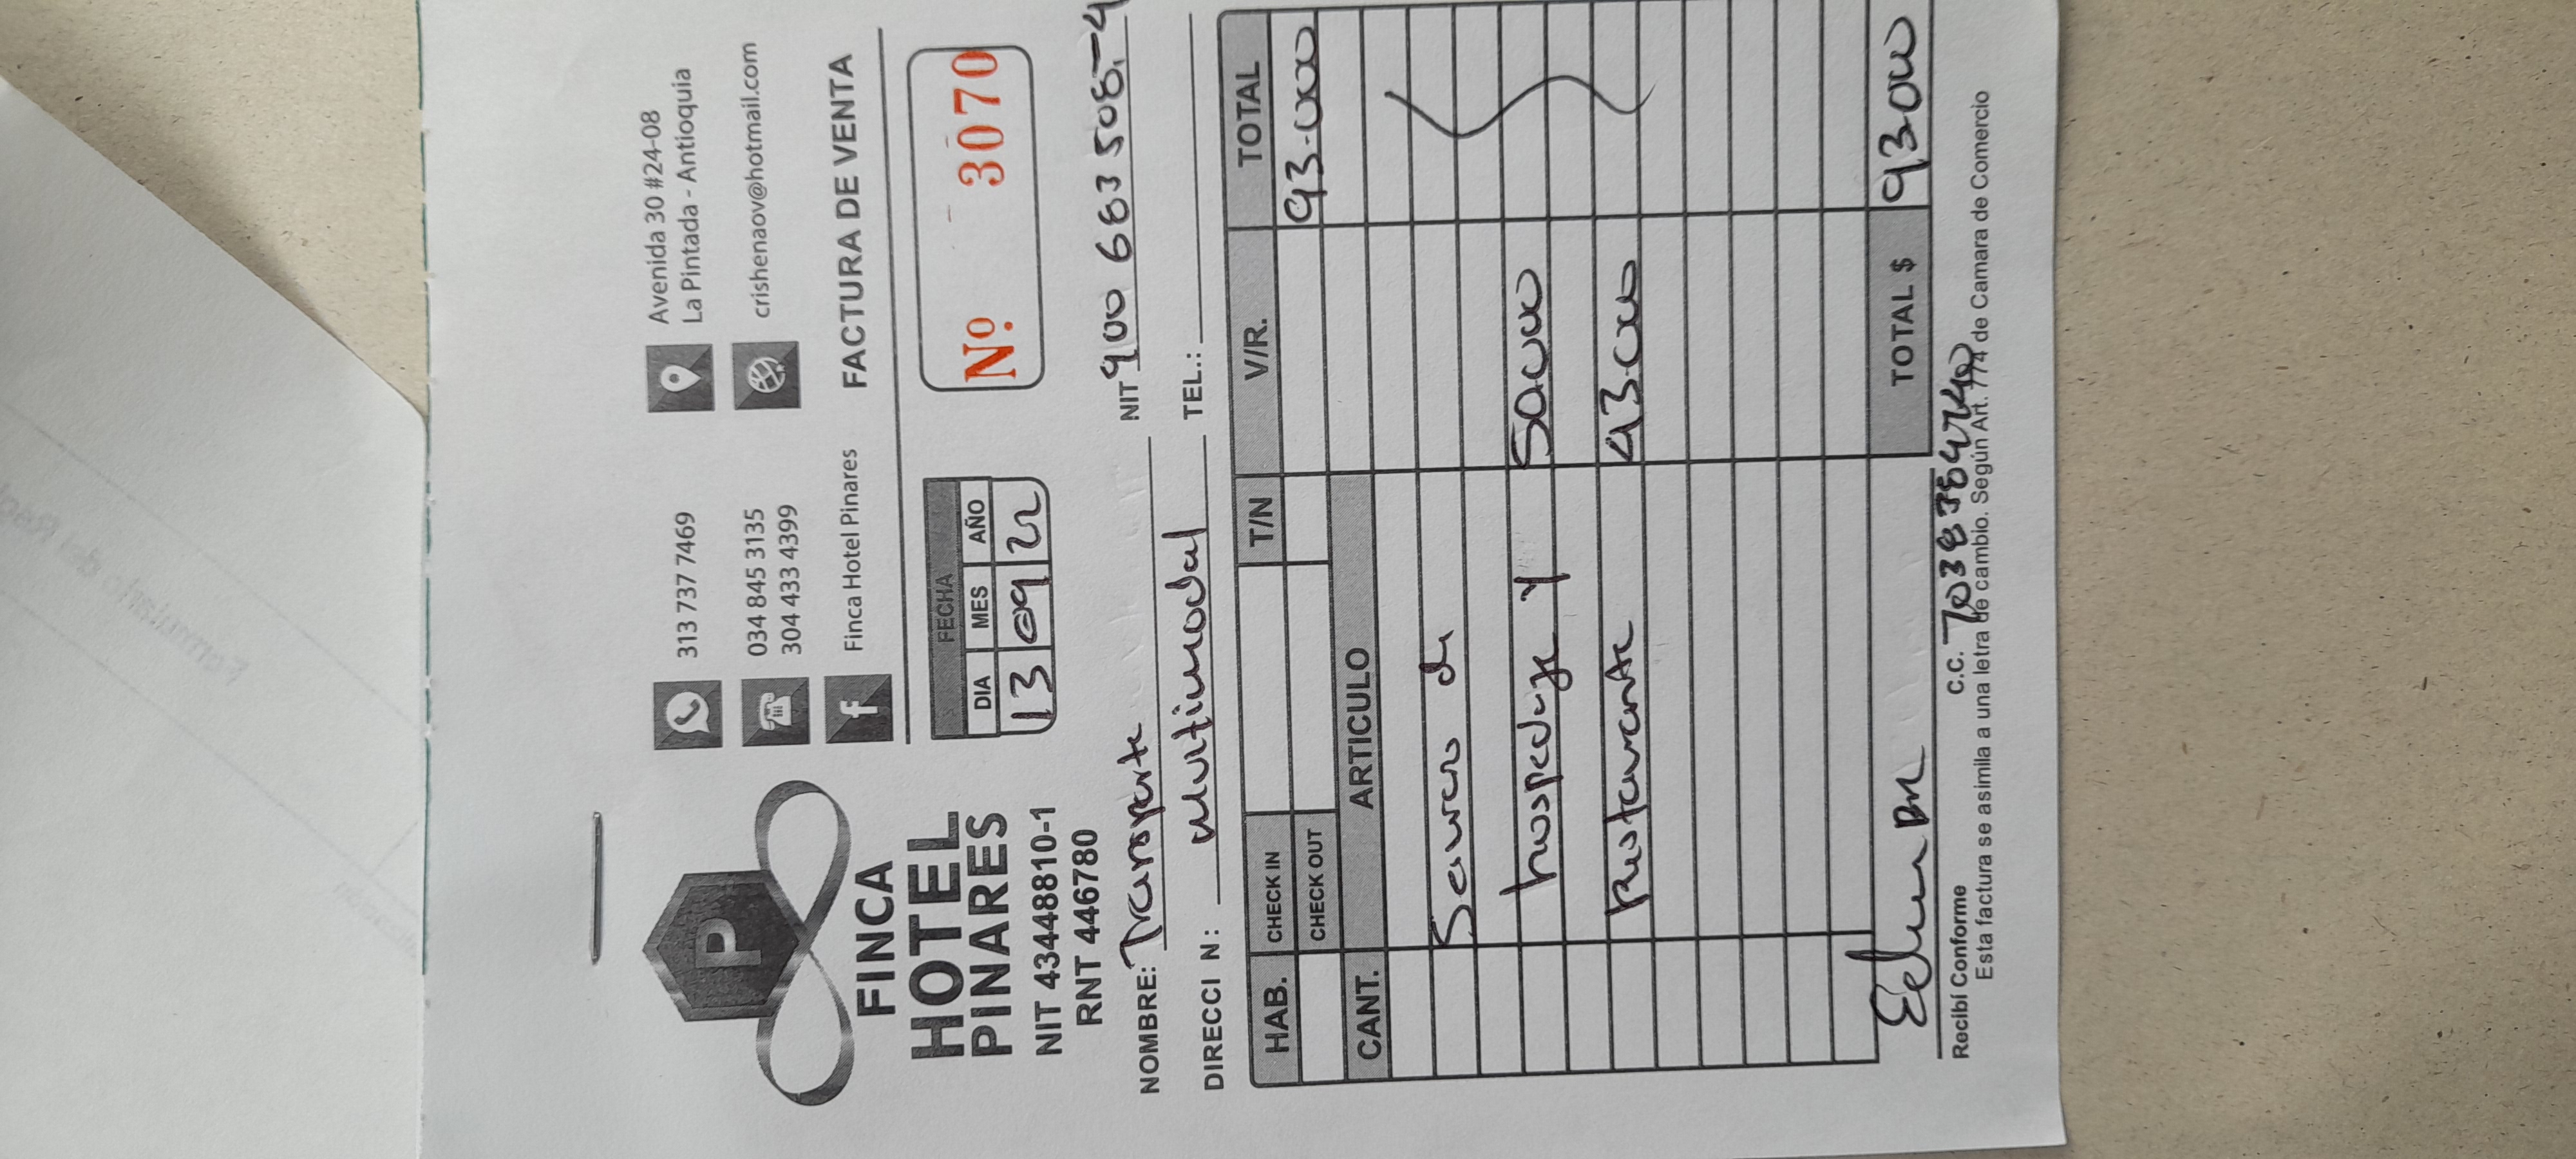 P
FINCA
HOTEL
PINARES
NIT 43448810-1
RNT 446780
313 737 7469
034 845 3135
304 433 4399
Finca Hotel Pinares
Avenida 30 #24-08
La Pintada - Antioquia
crishenaov@hotmail.com
FACTURA DE VENTA
FECHA
DIA MES AÑO
13 09 22
Nº 3070
NOMBRE: Transporte NIT 900 683 508-4
DIRECCI N: Multimodal TEL.:
HAB. CHECK IN T/N V/R. TOTAL
CHECK OUT 93.000
CANT. ARTICULO
de
hospedaje y 50.000
restaurante 43.000
TOTAL $ 93.000
Recibí Conforme C.C.
Esta factura se asimila a una letra de cambio. Según Art. 774 de Camara de Comercio